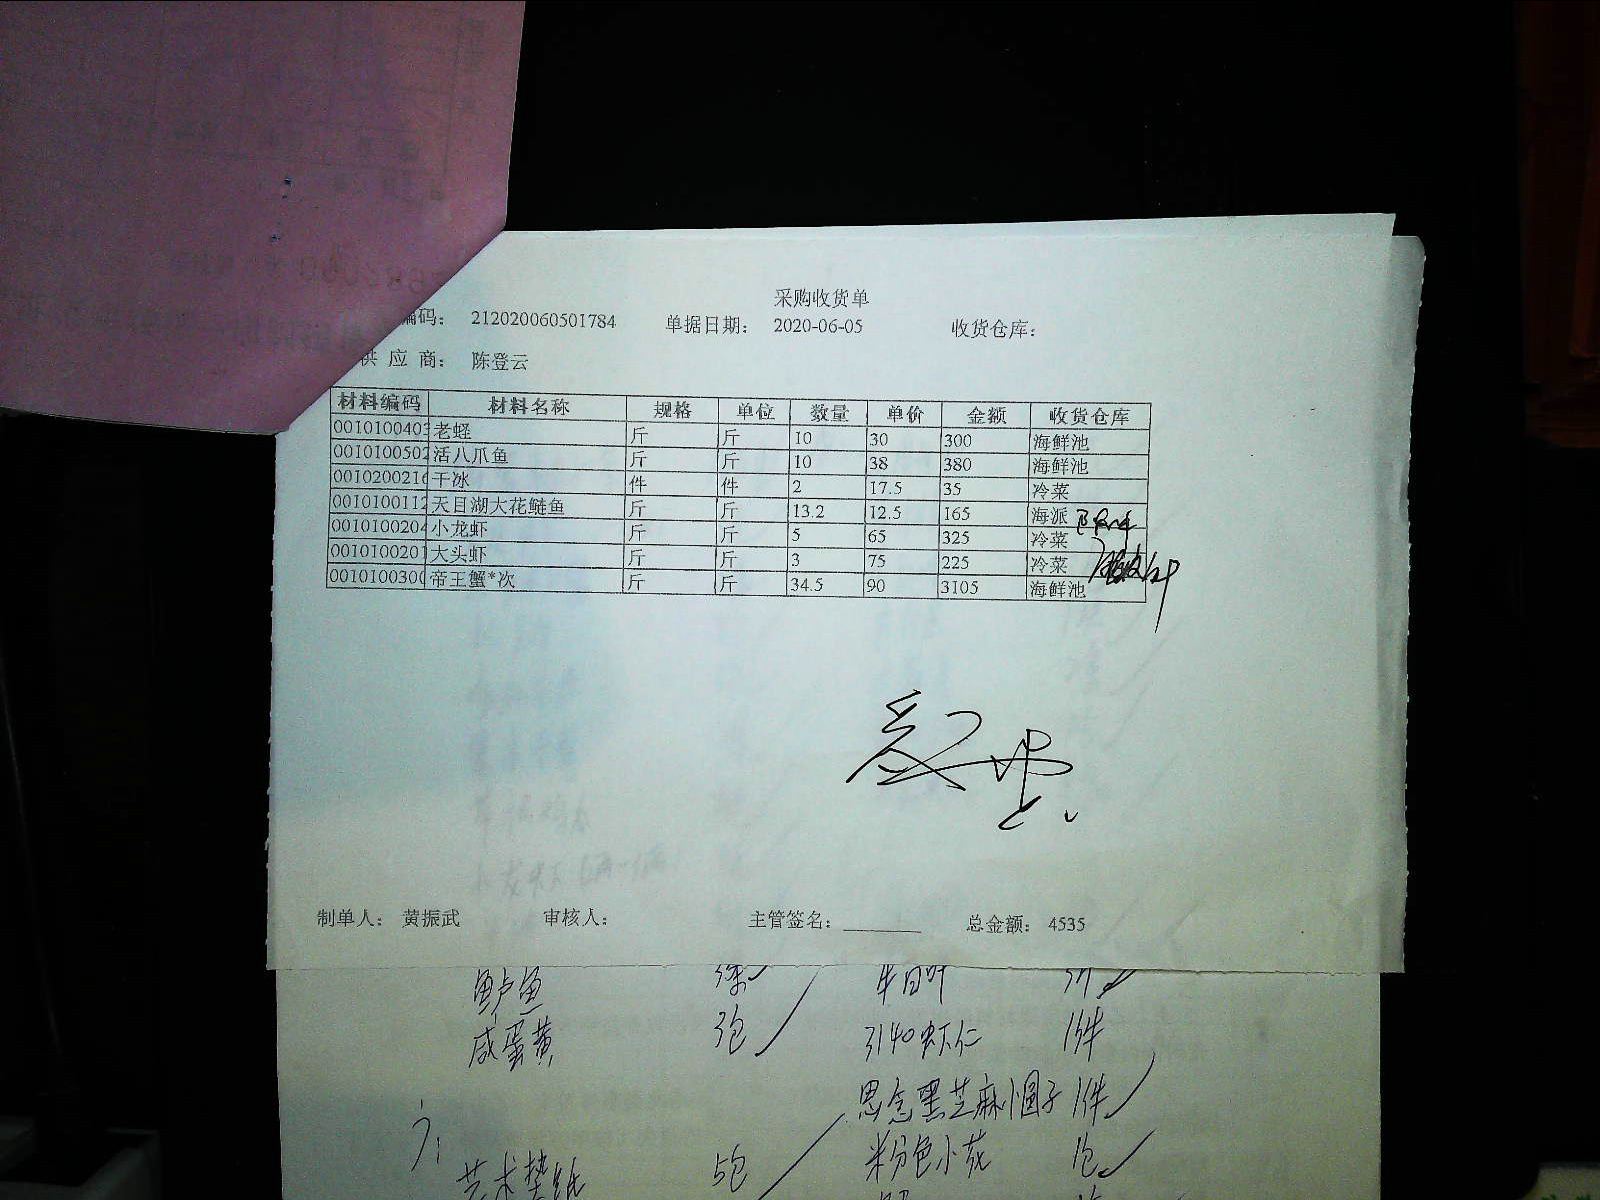 采购收货单
编码： 212020060501784 单据日期： 2020-06-05 收货仓库：
供 应 商： 陈登云
材料编码 材料名称 规格 单位 数量 单价 金额 收货仓库
0010100403 老蛏 斤 斤 10 30 300 海鲜池
0010100502 活八爪鱼 斤 斤 10 38 380 海鲜池
0010200216 干冰 件 件 2 17.5 35 冷菜
0010100112 天目湖大花鲢鱼 斤 斤 13.2 12.5 165 海派
0010100204 小龙虾 斤 斤 5 65 325 冷菜
0010100201 大头虾 斤 斤 3 75 225 冷菜
0010100300 帝王蟹*次 斤 斤 34.5 90 3105 海鲜池
制单人： 黄振武 审核人： 主管签名： 总金额： 4535
鲈鱼 3条 牛百叶
咸蛋黄 3包 3140虾仁 1件
思念黑芝麻小圆子 1件
米分色小花 1包
艺术垫纸 5包